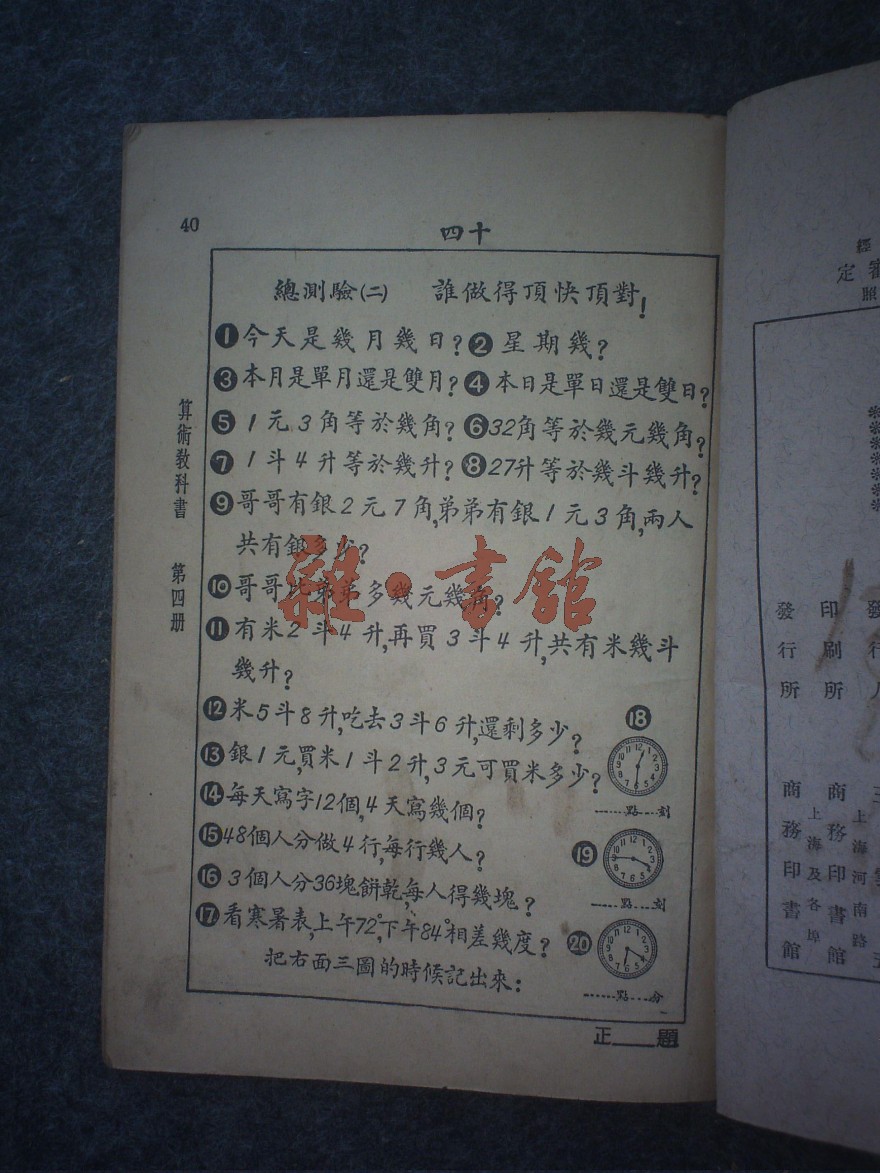 40
四十
總測驗(二) 誰做得頂快頂對!
❶今天是幾月幾日?❷星期幾?
❸本月是單月還是雙月?❹本日是單日還是雙日?
❺1元3角等於幾角?❻32角等於幾元幾角?
❼1斗4升等於幾升?❽27升等於幾斗幾升?
❾哥哥有銀2元7角,弟弟有銀1元3角,兩人
共有銀多少?
❿哥哥比弟弟多幾元幾角?
⓫有米2斗4升,再買3斗4升,共有米幾斗
幾升?
⓬米5斗8升,吃去3斗6升,還剩多少?
⓭銀1元,買米1斗2升,3元可買米多少?
⓮每天寫字12個,4天寫幾個?
⓯48個人分做4行,每行幾人?
⓰3個人分36塊餅乾,每人得幾塊?
⓱看寒暑表,上午72°,下午84°相差幾度?
把右面三圖的時候記出來:
⓲
12 1 2 3 4 5 6 7 8 9 10 11
......點...刻
⓳
12 1 2 3 4 5 6 7 8 9 10 11
......點...刻
⓴
12 1 2 3 4 5 6 7 8 9 10 11
......點...分
正____題
算術教科書 第四册
雜·書館
審定
發行人
印刷所 商務印書館
上海河南路
發行所 商務印書館
上海及各埠